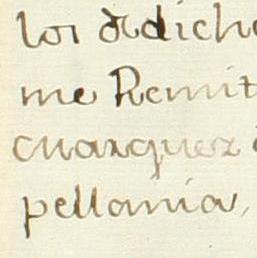 los dhdicho
me Remit
cuazquez
pellania,